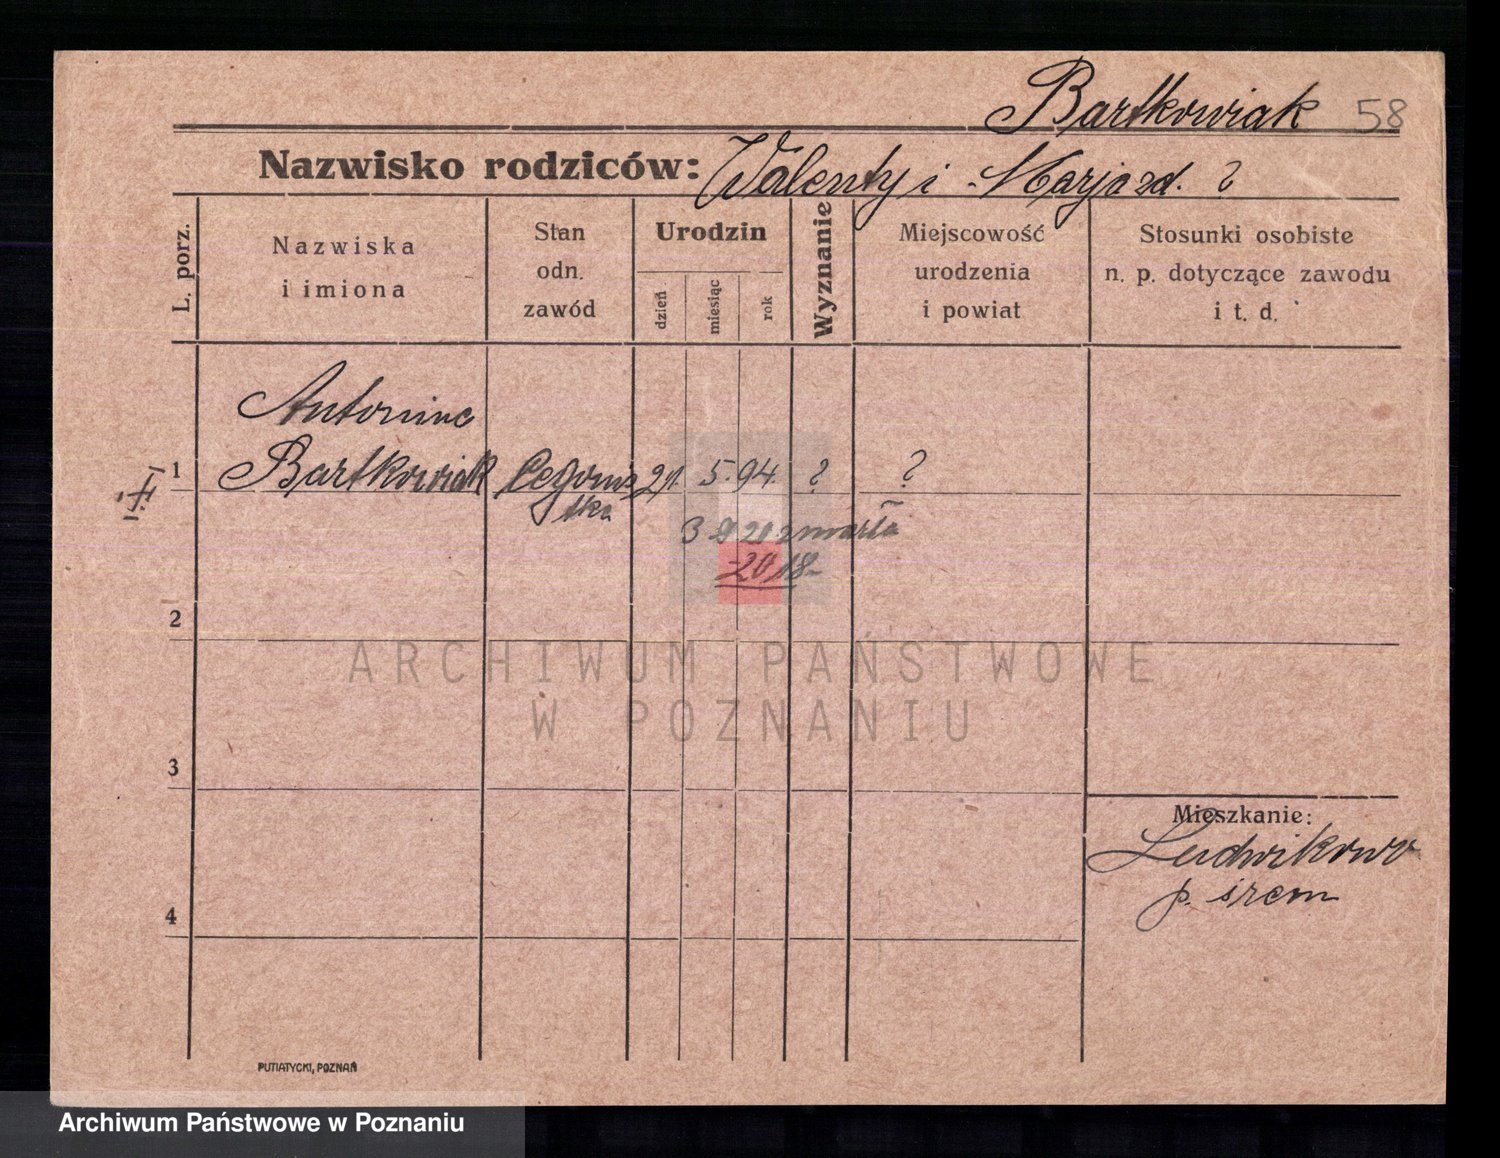 Bartkowiak 58
Nazwisko rodziców: Walenty i Marja zd. ?
L. porz.
Nazwiska
i imiona
Stan
odn.
zawód
Urodzin
dzień
miesiąc
rok
Wyznanie
Miejscowość
urodzenia
i powiat
Stosunki osobiste
n. p. dotyczące zawodu
i t. d.
Antonina
1 Bartkowiak 5. 94. ? ?
zmarła
2018
2
ARCHIWUM PAŃSTWOWE
W POZNANIU
3
Mieszkanie:
Ludwikowo
p. śrem
4
PUTIATYCKI, POZNAŃ
Archiwum Państwowe w Poznaniu